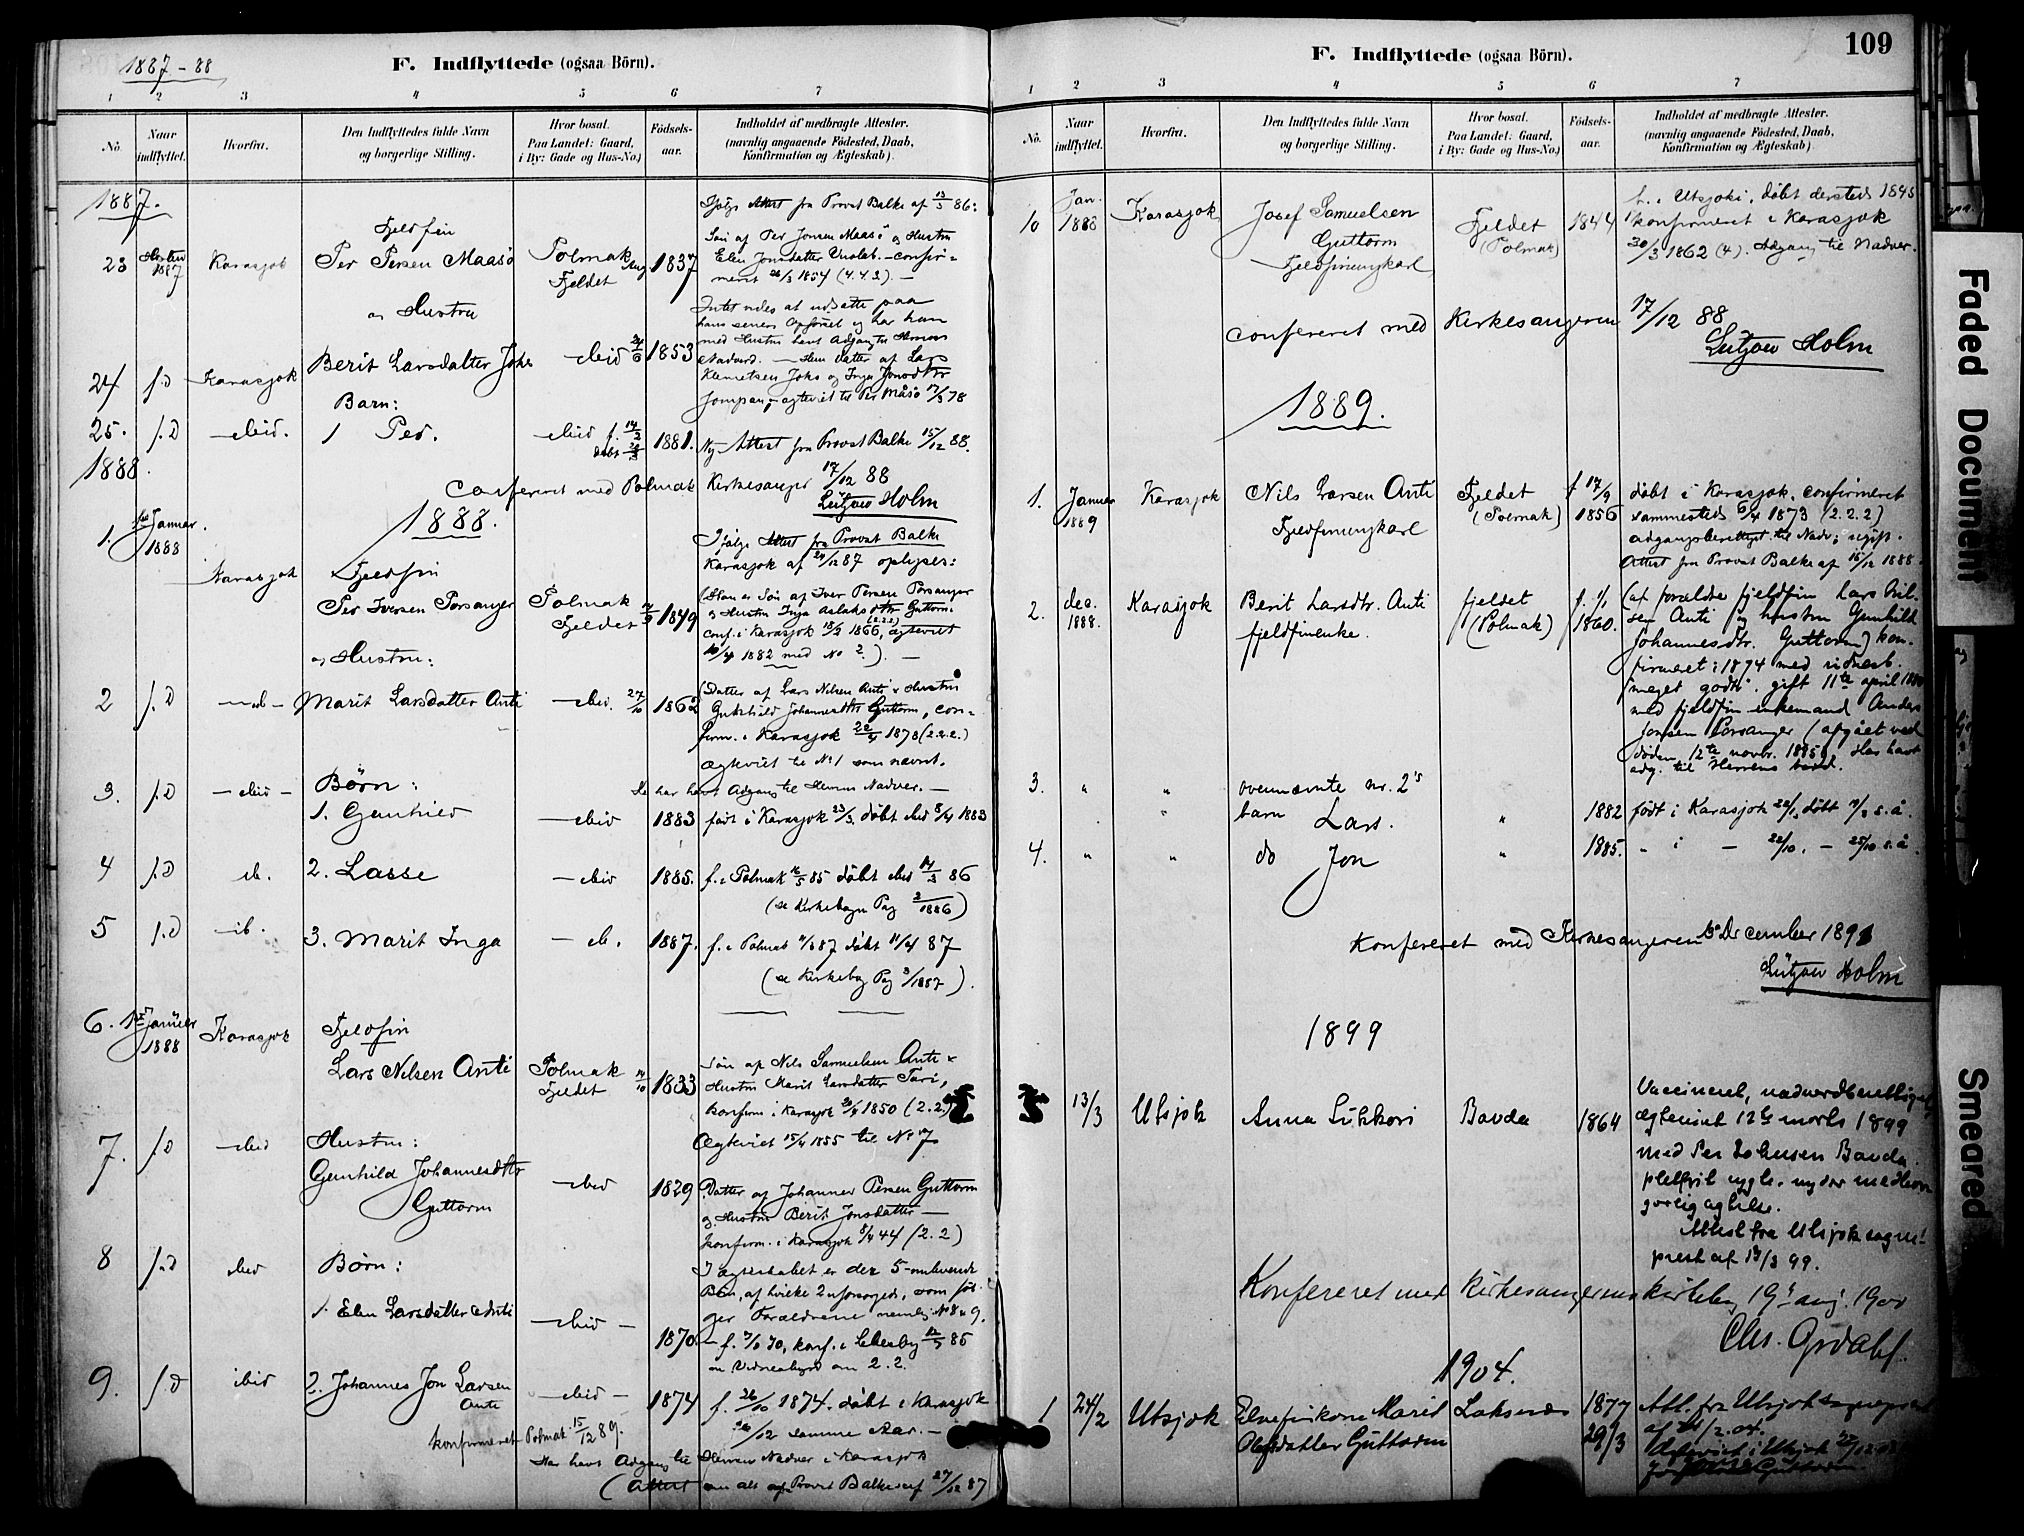 1887 - 88
F. Indflyttede (ogsaa Börn).
1 2 3 4 5 6 7
No. Naar indflyttet. Hvorfra. Den Indflyttedes fulde Navn og borgerlige Stilling. Hvor bosat. Paa Landet: Gaard, i By: Gade og Hus-No.) Födsels-aar. Indholdet af medbragte Attester. (navnlig angaaende Födested, Daab, Konfirmation og Ægteskab).
1887.
23 Høsten 1887 Karasjok Fjeldfin Per Persen Maasø Polmak Fjeldet 1837
Ifølge Attest fra Provst Balke af 13/3 86:
Søn af Per Jonsen Maasø og Hustru
Elen Jonsdatter
meret 1854 (4.4.3). —
og Hustru
Intet vides at udsætte paa
hans senere Opførsel og har han
med Hustru havt Adgang til Herrens
24 f.D Karasjok Berit Larsdatter Johs ibid 24/6 1853
Nadverd. — Hun datter af Lars
Klemetsen Johs og Inga Jonsdtr
Barn:
25. f.D ibid. 1 Per. ibid f. 14/2 1881. Ny Attest fra Provst Balke 15/12 88.
1888.
Confereret med Polmak Kirkesanger 17/12 88
Lützow Holm
1888.
1. Januar 1888 Karasjok Fjeldfin Per Iversen Porsanger Polmak Fjeldet 1849
Ifølge Attest fra Provst Balke
Karasjok af 24/12 87 oplyses:
(Han er Søn af Iver Persen Porsanger
og Hustru Inga Aslaksdtr Guttorm.
conf. i Karasjok 18/3 1866, ægteviet
1882 med No 2.). —
og Hustru:
2 f.D ib Marit Larsdatter Anti ibid. 27/10 1862
(Datter af Lars Nilsen Anti & Hustru
Gunhild Johannesdtr Guttorm, con-
firm. i Karasjok 1878 (2.2.2.)
ægteviet til No 1 som nævnt.
De har havt Adgang til Herrens Nadver. —
3. f.D ibid Børn: 1. Gunhild ibid 1883 født i Karasjok 23/3. døbt ibid 8/4 1883
4 f.D ib. 2. Lasse ibid 1885. f. i Polmak 16/5 85 døbt ibid 14/3 86
(se Kirkebogen Pag 2/1886)
5 f.D ib. 3. Marit Inga ib. 1887. f. i Polmak 87 døbt 11/4 87
(se Kirkebog Pag 3/1887).
6. Januar 1888 Karasjok Fjeldfin Lars Nilsen Anti Polmak Fjeldet 1833
Søn af Nils Samuelsen Anti &
Hustru Marit Larsdatter Tari,
Konfirm i Karasjok 1850 (2.2.)
Ægteviet 15/4 1855 til No 7
7. f.D ibid Hustru: Gunhild Johannesdtr Guttorm ibid 1829
Datter af Johannes Persen Guttorm
og Hustru Berit Jonsdatter —
konfirm. i Karasjok 8/4 44 (2.2)
8 f.D ibid Børn: 1. Elen Larsdatter Anti ibid 1870
I ægteskabet er der 5 omlevende
Børn, af hvilke 2 uforsørgede, som føl-
ger Forældrene nemlig No 8 & 9.
70, konf. i Lebesby 85
2.2.
9. f.D ibid 2. Johannes Jon Larsen Anti ibid 1874 f. 26/10 1874. døbt i Karasjok
26/12 samme Aar. —
konfirmeret Polmak 15/12 89.
Har havt Adgang til Herrens Nadver i Karasjok
(Attest om alt af Provst Balke af 27/12 87
109
F. Indflyttede (ogsaa Börn).
1 2 3 4 5 6 7
No. Naar indflyttet. Hvorfra. Den Indflyttedes fulde Navn og borgerlige Stilling. Hvor bosat. Paa Landet: Gaard, i By: Gade og Hus-No.) Födsels-aar. Indholdet af medbragte Attester. (navnlig angaaende Födested, Daab, Konfirmation og Ægteskab).
10 Jan. 1888 Karasjok Josef Samuelsen Guttorm Fjeldfinungkarl Fjeldet (Polmak) 1844
f. i Utsjoki, døbt dersteds 1845
konfirmeret i Karasjok
30/3 1862 (4). Adgang til Nadver.
confereret med Kirkesangeren 17/12 88
Lützow Holm
1889.
1. Januar 1889 Karasjok Nils Larsen Anti Fjeldfinungkarl Fjeldet (Polmak) f 17/9 1856
døbt i Karasjok. confirmeret
sammesteds 6/4 1873 (2.2.2)
adgangsberettiget til Nadv; ugift.
Attest fra Provst Balke af 15/12 1888.
2. dec. 1888. Karasjok Berit Larsdtr. Anti fjeldfinenke. fjeldet (Polmak) f. 1/1 1860.
(af forældre fjeldfin Lars Nil-
sen Anti og hustru Gunhild
Johannesdtr. Guttorm) kon-
firmeret i 1874 med vidnesb.
"meget godt". gift 11te april 1880
med fjeldfin enkemand Anders
Jonsen Porsanger (afgået ved
døden 12te novbr. 1885). Har havt
adg. til Herrens bord.
3. " " ovennævnte nr. 2's barn Lars. " 1882 født i Karasjok døbt s. å.
4. " " do Jon " 1885. " i — 22/10. — 25/10 s. å.
Konfereret med Kirkesangerens December 1893
Lützow Holm
1899
13/3 Utsjok Anna Lukkari Bavda 1864
Vaccineret, nadverdberettiget
ægteviet 12te marts 1899
med Per Johnsen Bavda.
pletfrit rygte. nyder medbor-
gerlig agtelse.
Attest fra Utsjok sogne-
prest af 13/3 99.
Konfereret med Kirkesangerens kirkebog 19' aug. 1900
Chr. Opdahl
1904.
1 24/2 Utsjok Elvefinkone Marit Olafsdatter Guttorm Laksenes 1877 29/3
Att. fra Utsjok sogneprest
af 24/2.04.
Guttorm.
Faded Document
Smeared